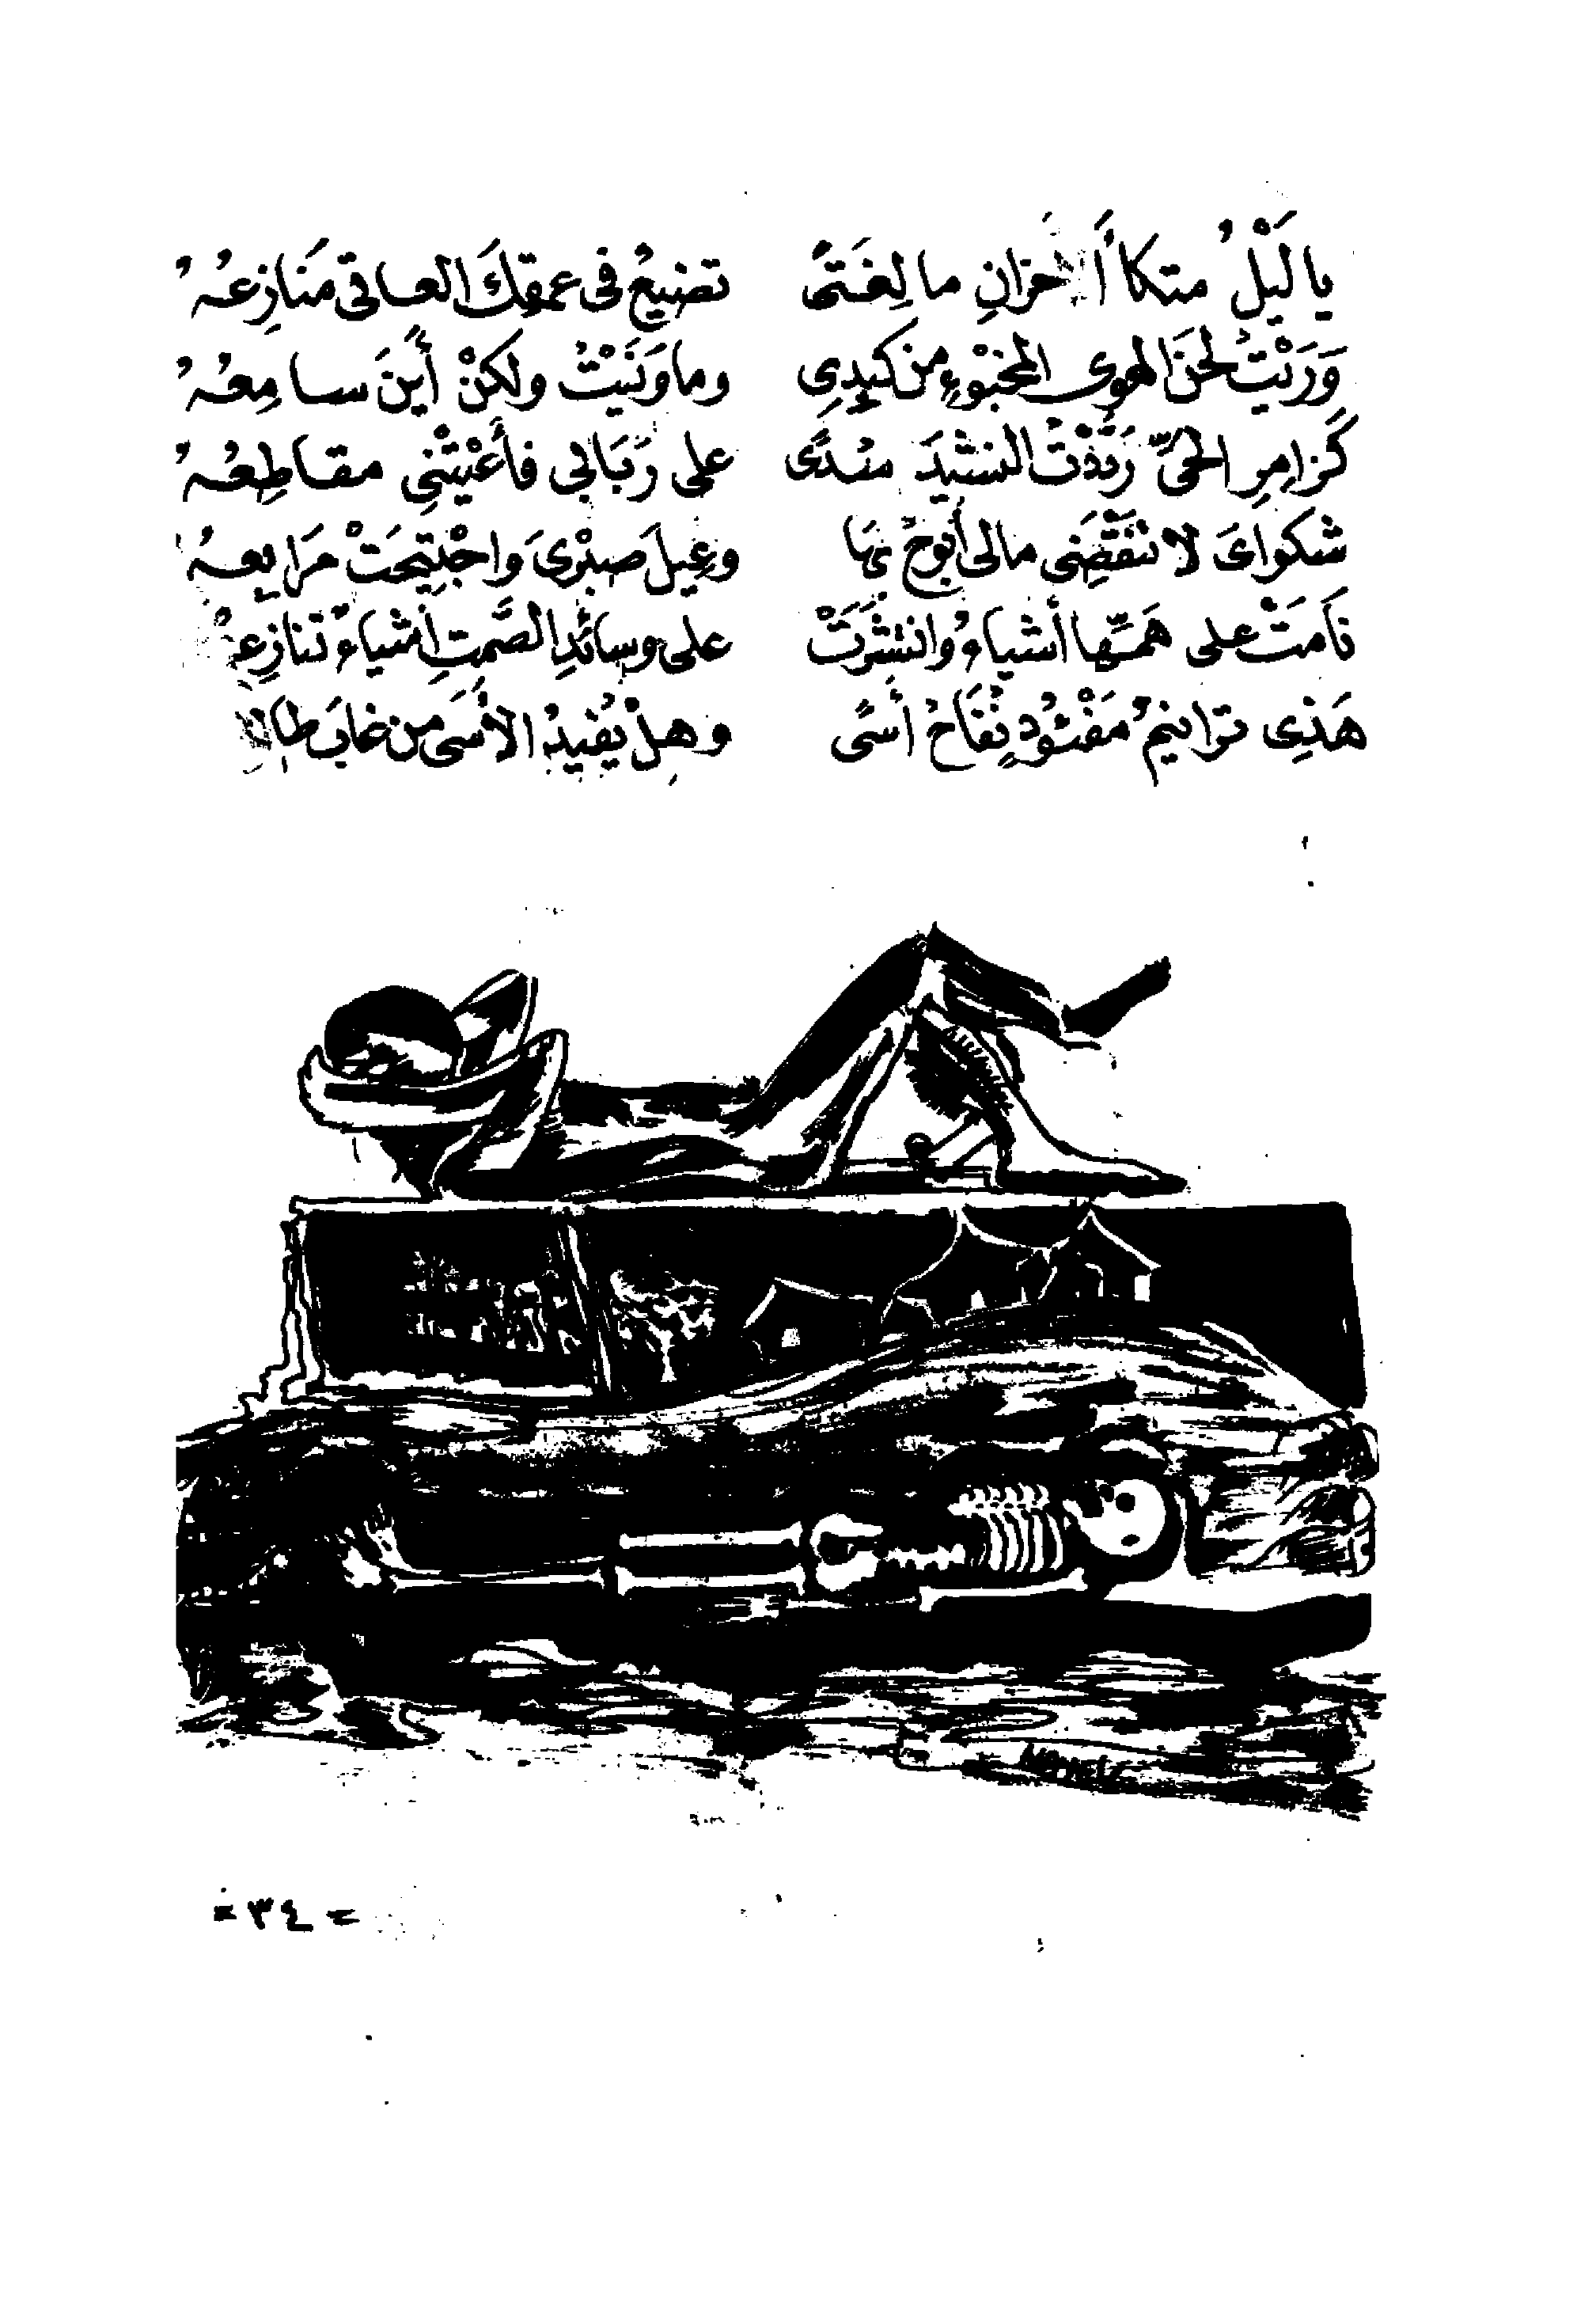 يا لَيْلُ متكأَ الأحزانِ ما لِفَتىً تضيعُ فى عمقِكَ العاتى مَنازِعُهُ
وَرَيْتُ لحنَ الهوى المخبوْءِ من كَبِدِى وما وَنَيْتُ ولكنْ أينَ سامِعُهُ
كَزامِرِ الحىِّ رَدَّدْتُ النشيدَ مُدىً على رَبَابى فأَعْيَتْنِى مقاطِعُهُ
شكواىَ لا تَنْقَضِى مالى أبُوحُ بِهَا وعِيلَ صبْرِىَ وَاجْتِيحَتْ مَرَابِعُهُ
نَامَتْ على هَمِّها أشياءُ وانتشَرَتْ على وسائدِ الصَّمتِ أشياءٌ تنازِعُهُ
هَذِى ترانيمُ مَفْئُودٍ نُفَاحُ أسًى وهلْ يُفيدُ الأَسَى من غابَ
= ٣٤ =